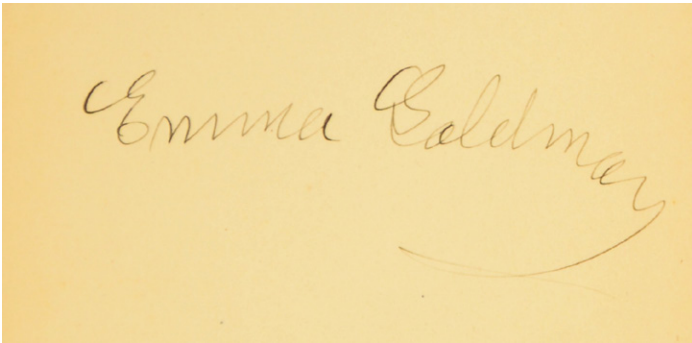 Emma Goldman